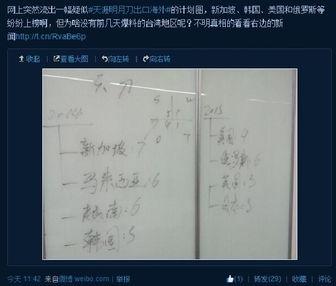 网上突然流出一幅疑似#天涯明月刀出口海外#的计划图，新加坡、韩国、美国和俄罗斯等
纷纷上榜啊，但为啥没有前几天爆料的台湾地区呢？不明真相的看看右边的新
闻http://t.cn/RvaBe6p
收起
查看大图
向左转
向右转
天刀
新加坡:7
马来西亚:6
越南:6
韩国:5
2015
美国:9
俄罗斯:6
英国:5
今天 11:42 来自微博 weibo.com 举报
(1) 转发(29) 收藏 评论